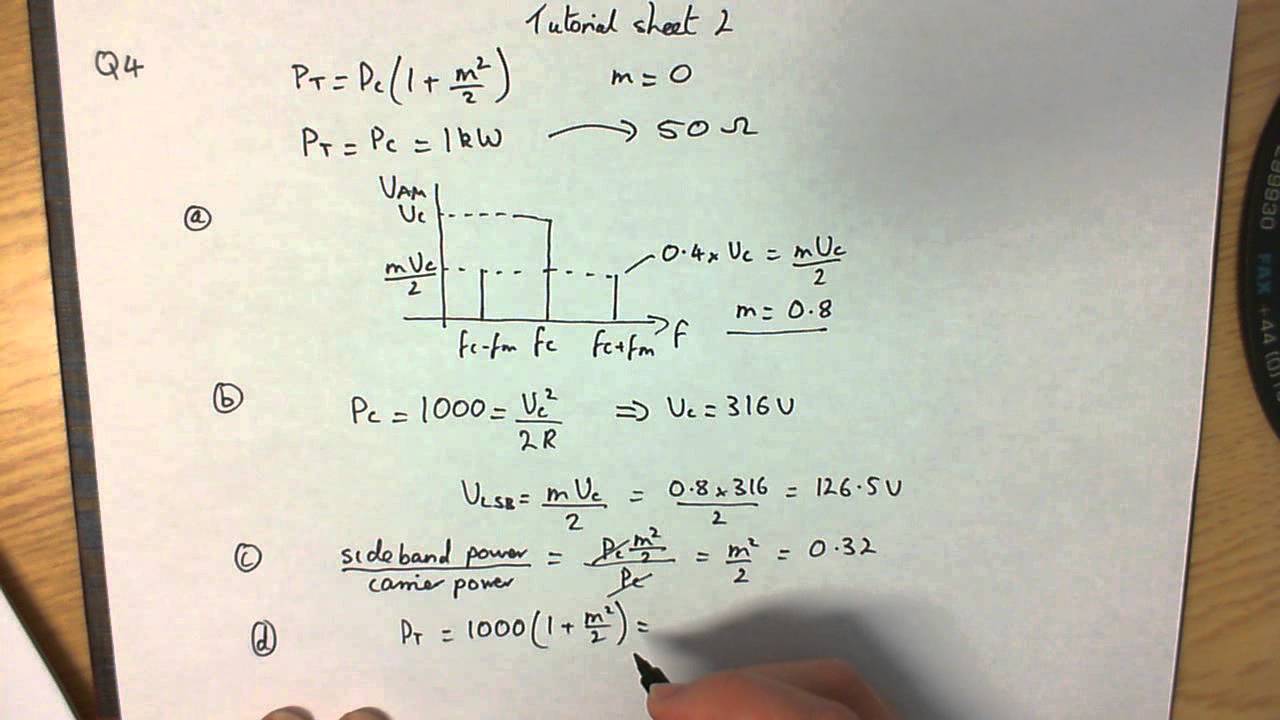 Tutorial sheet 2
Q4
P_T = P_C (1 + m²/2) m = 0
P_T = P_C = 1kW → 50 Ω
ⓐ
V_AM
V_C
mV_C/2
0.4 × V_C = mV_C/2
m = 0.8
fc-fm fc fc+fm f
ⓑ
P_C = 1000 = V_C²/2R ⇒ V_C = 316V
V_LSB = mV_C/2 = 0.8×316/2 = 126.5V
ⓒ sideband power/carrier power = P_C m²/2/P_C = m²/2 = 0.32
ⓓ P_T = 1000 (1 + m²/2) =
FAX +44 (0)